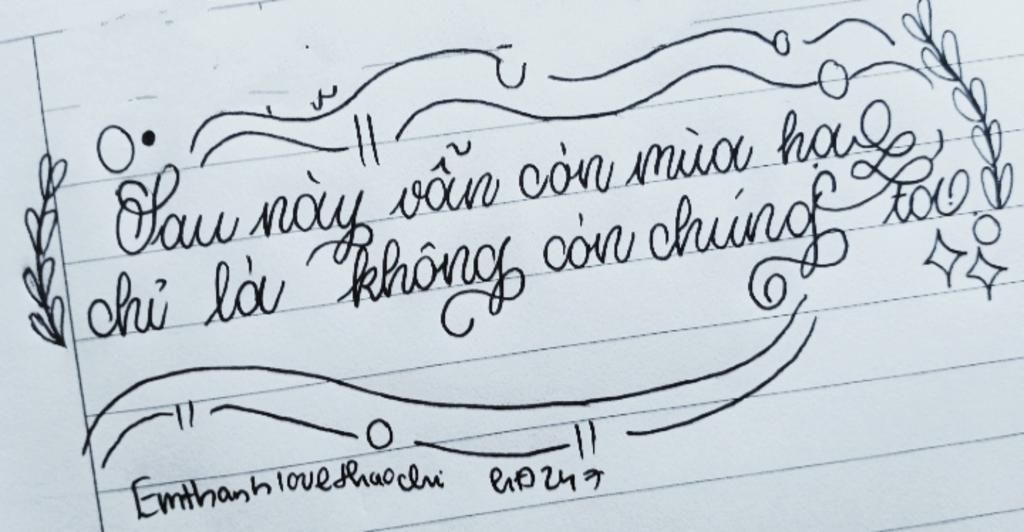 Sau này vẫn còn mùa hạ
chỉ là không còn chúng ta
Emthanhlovethaochi